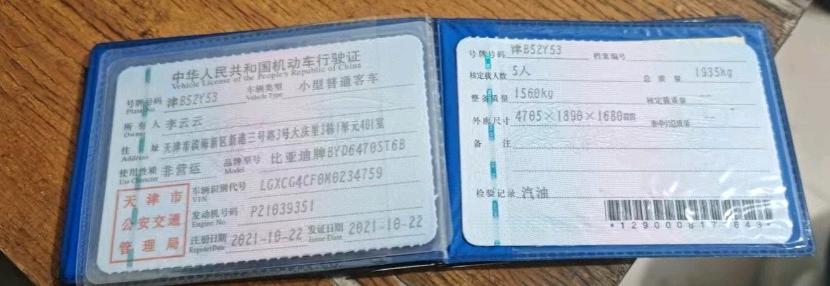 中华人民共和国机动车行驶证
Vehicle License of the People's Republic of China
号牌号码 津B52Y53 车辆类型 小型普通客车
Plate No. Vehicle Type
所有人 李云云
Owner
住址 天津市滨海新区新港三号路3号大庆里3栋1单元401室
Address
使用性质 非营运 品牌型号 比亚迪牌BYD6470ST6B
Use Character Model
天津市
公安交通
管理局
车辆识别代号 LGXCG4CF0M0234759
VIN
发动机号码 P21039351
Engine No.
注册日期 2021-10-22 发证日期 2021-10-22
Register Date Issue Date
号牌号码 津B52Y53 档案编号
核定载人数 5人 总质量 1935kg
整备质量 1560kg 核定载质量
外廓尺寸 4705×1890×1680mm
备注
检验记录 汽油